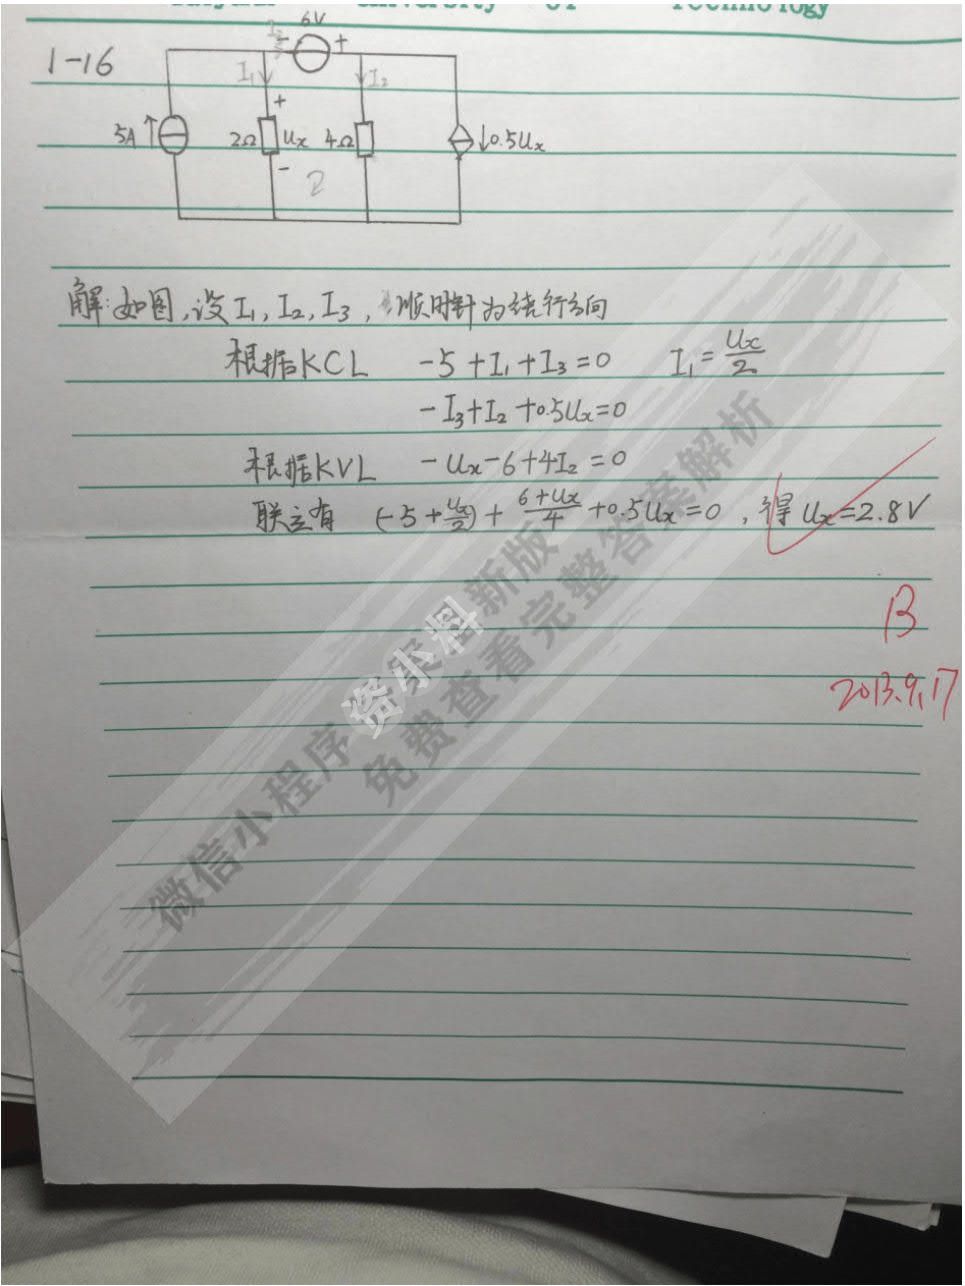 University of Technology
1-16
I₃ 6V
- +
I₁ I₂
+
5A 2Ω Ux 4Ω 0.5Ux
-
2
解:如图,设I₁,I₂,I₃,顺时针为绕行方向
根据KCL -5+I₁+I₃=0 I₁=Ux/2
-I₃+I₂+0.5Ux=0
根据KVL -Ux-6+4I₂=0
联立有 (-5+Ux/2)+(6+Ux)/4+0.5Ux=0,得Ux=2.8V
B
2013.9.17
微信小程序 资小料 新版
免费查看完整答案解析